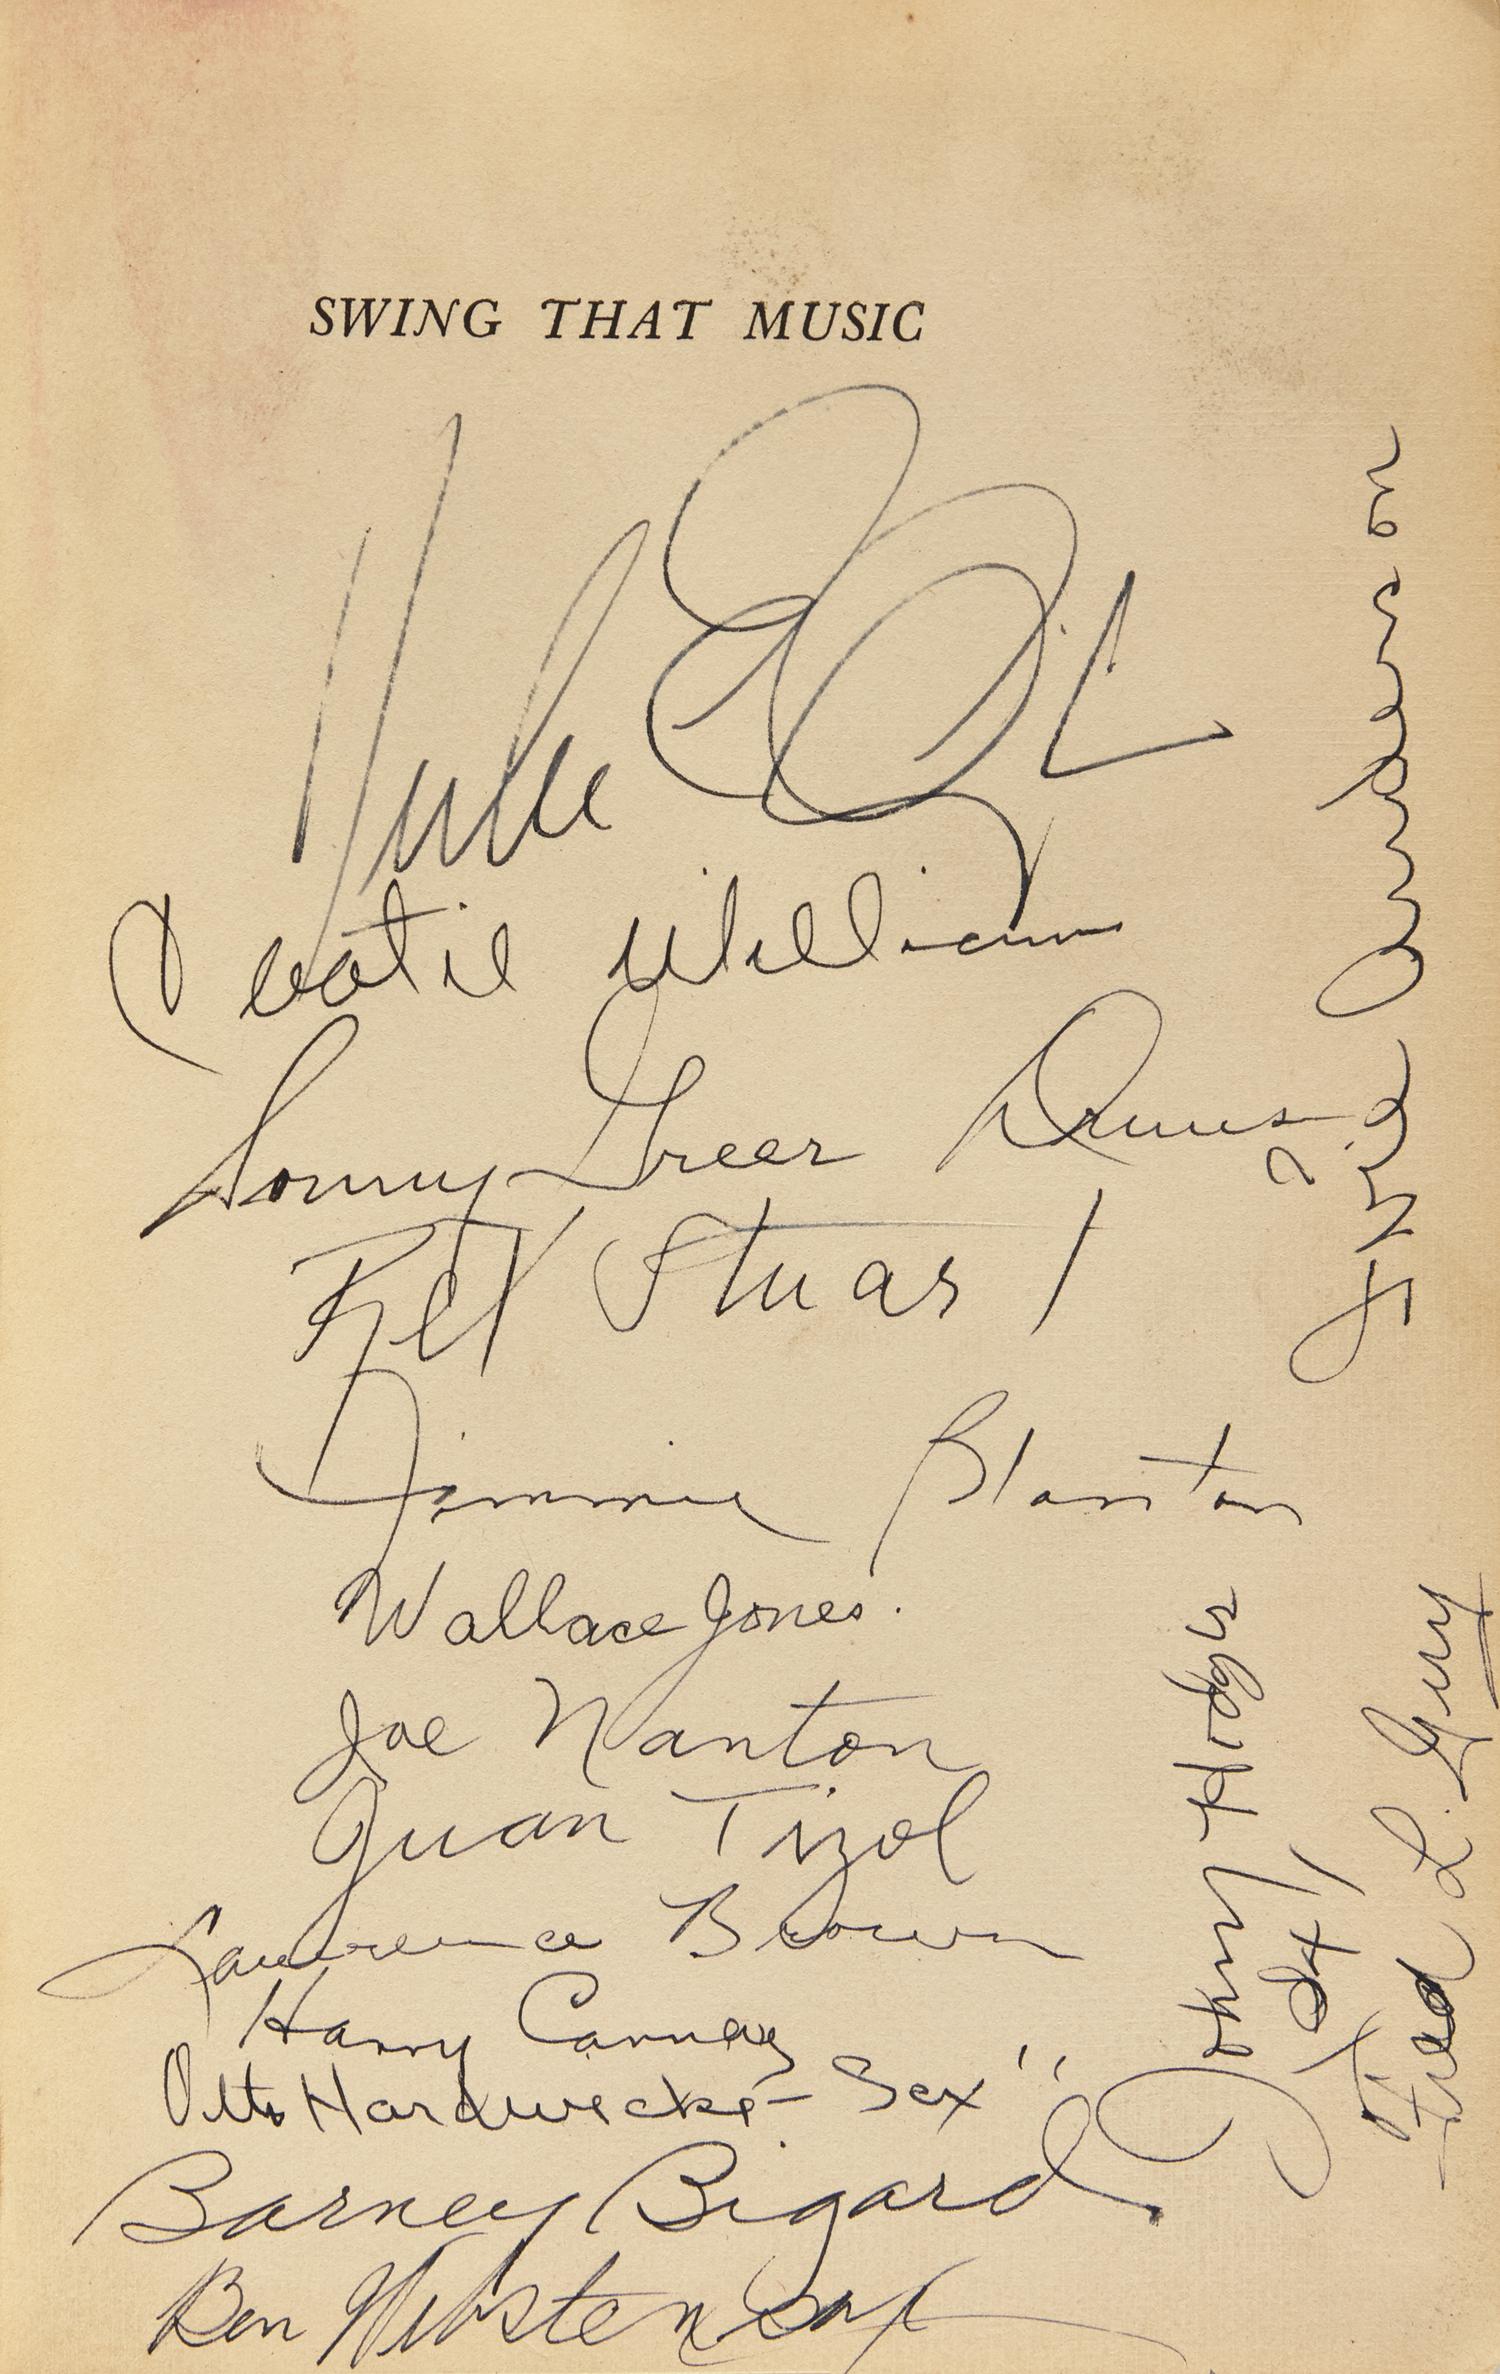 SWING THAT MUSIC
Duke Ellington
Cootie Williams
Sonny Greer Drums
Rex Stuart
Jimmie Blanton
Wallace Jones.
Joe Nanton
Juan Tizol
Lawrence Brown
Harry Carney
Otto Hardwicke - Sax"
Barney Bigard
Ben Webster Sax
Ivie Anderson
Johnny Hodges
Fred L. Guy